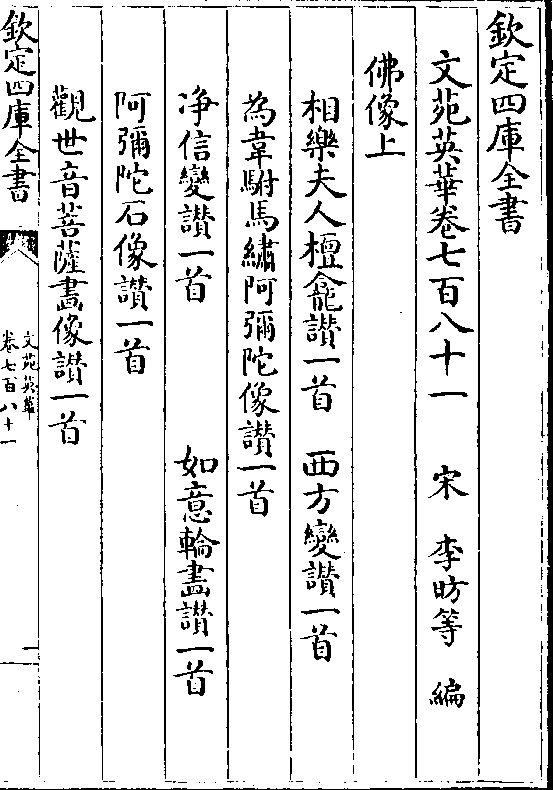 欽定四庫全書
文苑英華卷七百八十一　宋　李昉等　編
佛像上
相樂夫人檀龕讃一首　西方變讃一首
為韋駙馬繡阿彌陀像讃一首
净信變讃一首　如意輪畫讃一首
阿彌陀石像讃一首
觀世音菩薩畫像讃一首
欽定四庫全書
文苑英華
卷七百八十一
一